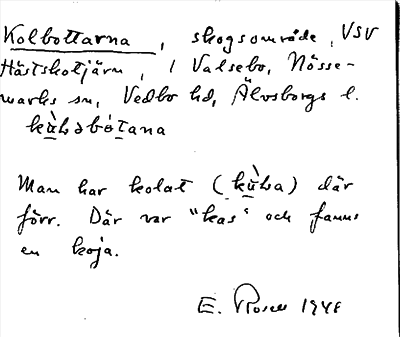 Kolbottarna, skogsområde, VSV
Hästskotjärn, i Valsebo, Nösse-
marks sn, Vedbo hd, Älvsborgs l.
kù̱ḷabó̱tana
Man har kolat (kù̱ḷa) där
förr. Där var "kas" och fanns
en koja.
E. Rosell 1948